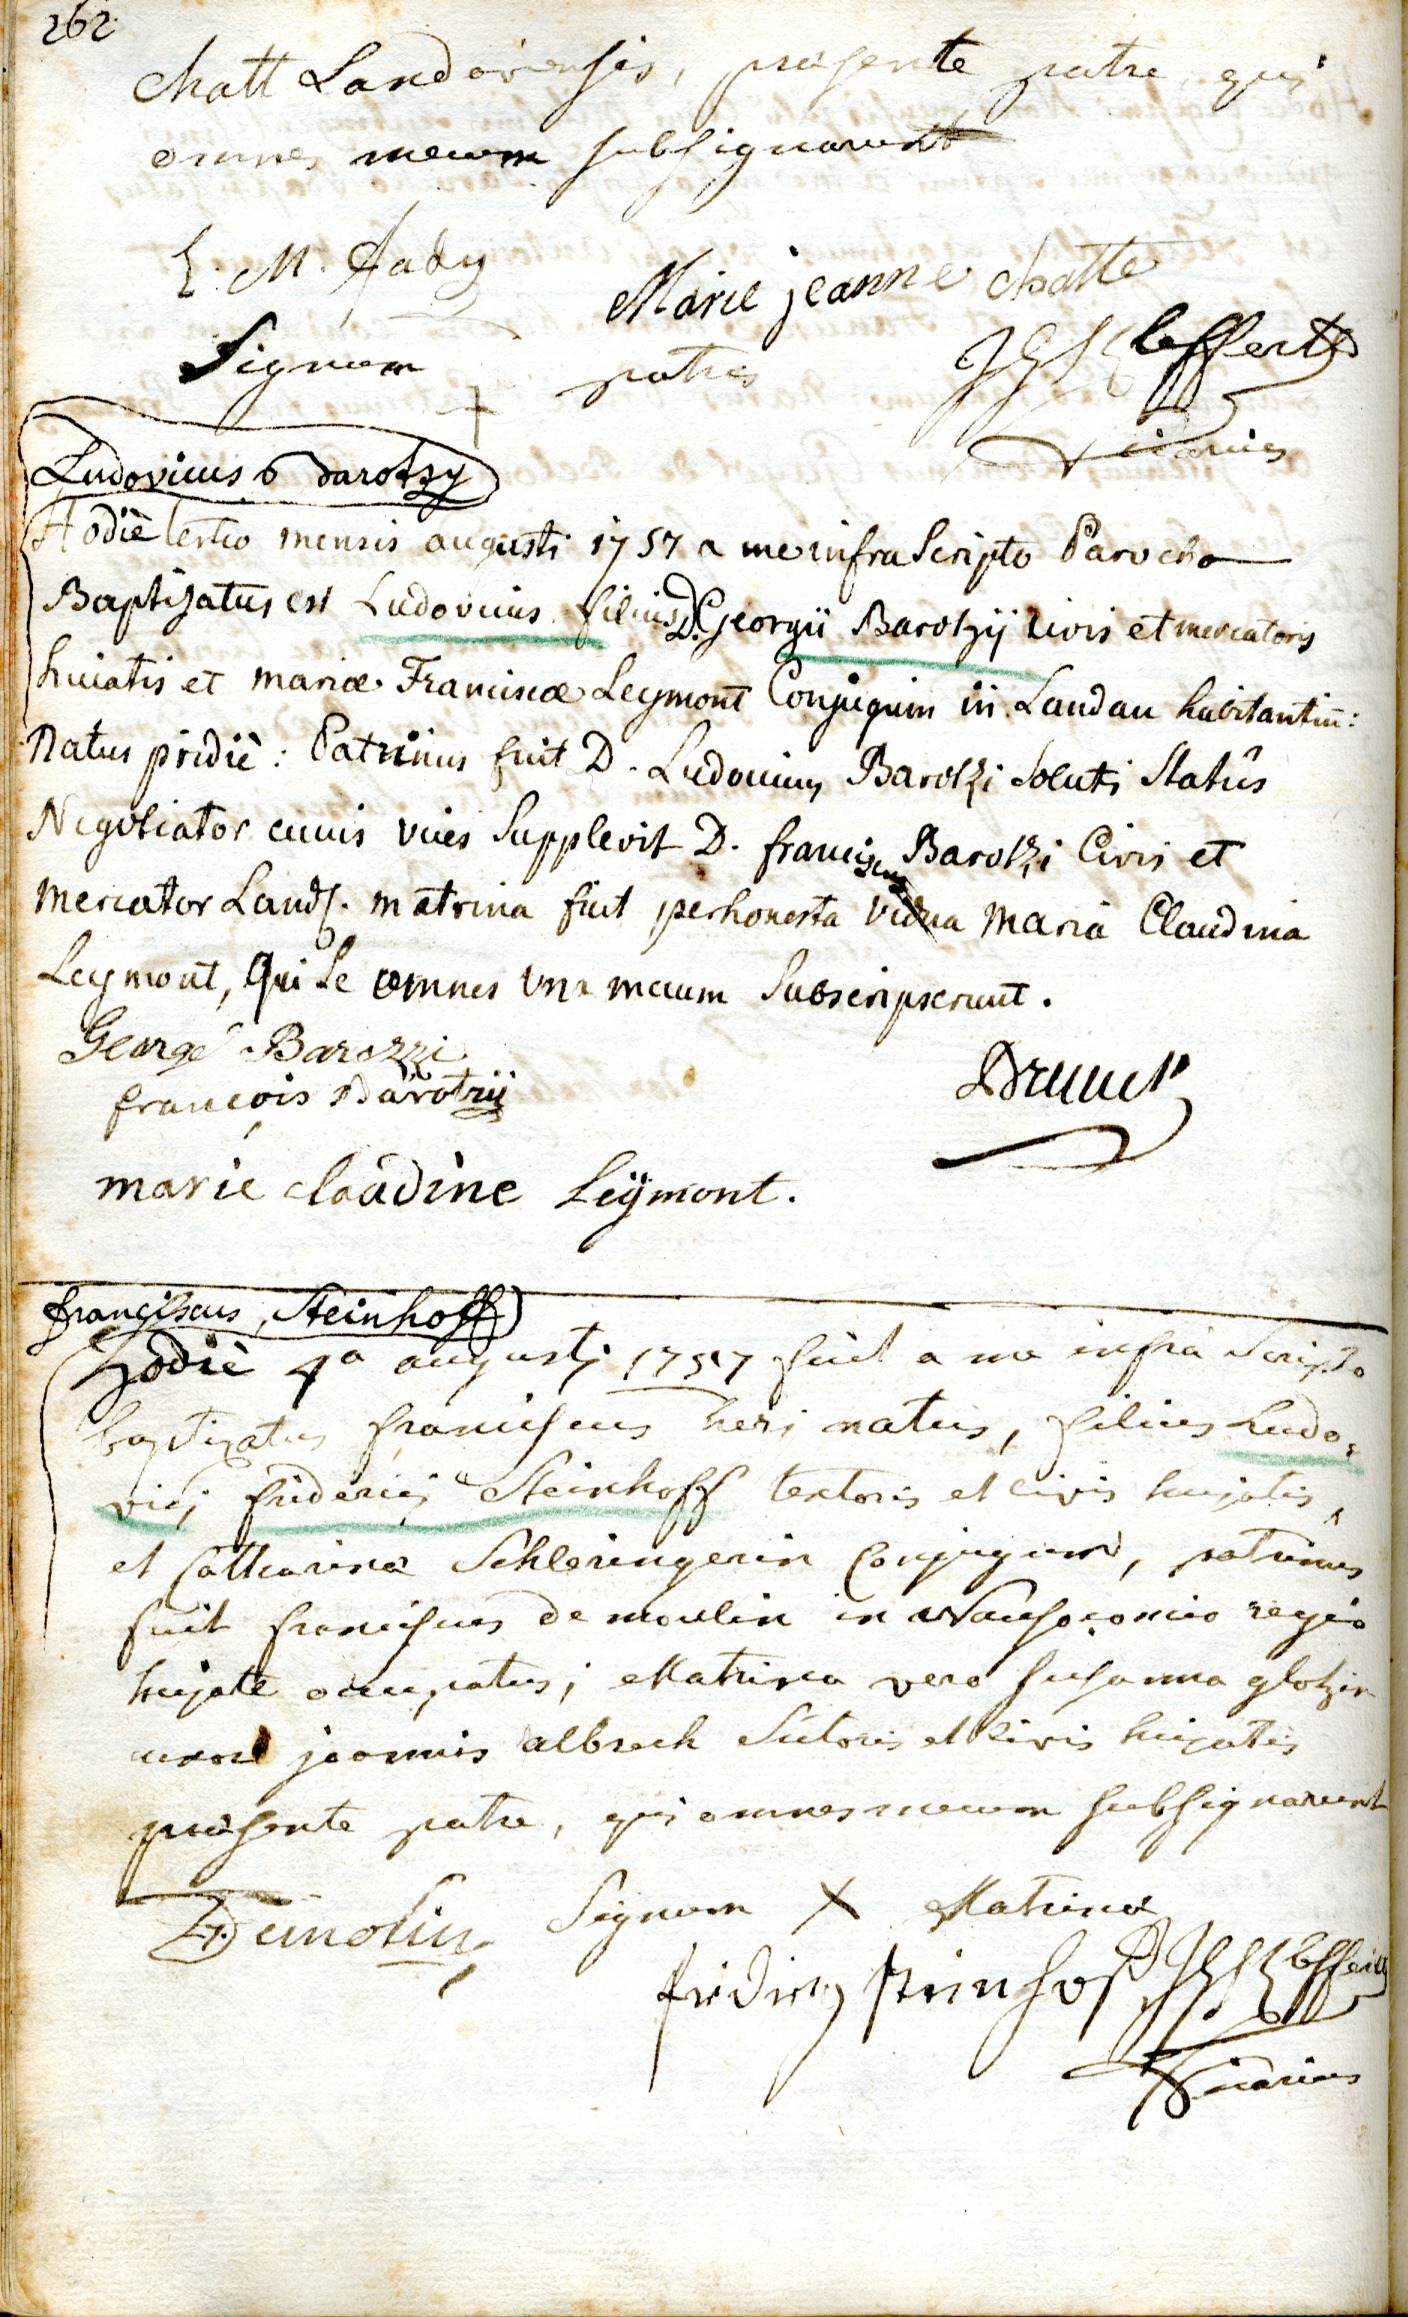 262.
Chatt Landaviensis, præsente patre, qui
omnes mecum subsignarunt
E. M. Sady
Marie jeanne chatte
Signum + patris
Vicarius
Ludovicus Barotzy
Hodiè tertio mensis augusti 1757 a me infra Scripto Parocho
Baptizatus est Ludovicus filius D. Georgii Barotzij civis et mercatoris
huiatis et mariæ Franciscæ Leymont Conjugum in Landau habitantiū:
Natus pridiè: Patrinus fuit D. Ludovicus Barotzi Soluti Statûs
Negotiator cuius vices Supplevit D. franciscus Barotzi Civis et
mercator Lands. matrina fuit perhonesta vidua maria Claudina
Leymont, qui se omnes una mecum Subscripserunt.
George Barozzi
françois Barotzij
Brunck
marie claudine Leÿmont.
franciscus Steinhoff
Hodiè 4a augustj 1757 fuit a me infra Scripto
baptizatus franciscus heri natus, filius Ludo-
vicj friderici Steinhoff textoris et civis hujatis,
et Catharinæ Schleringerin Conjugum, patrinus
fuit franciscus de moulin in Nausocomio regio
hujate occupatus; Matrina vero susanna glotzin
uxor joannis albrech Sutoris et civis hujatis
præsente patre, qui omnes mecum subsignarunt
Demolin
Signum X Matrinæ
fridrich steinhoff
Vicarius